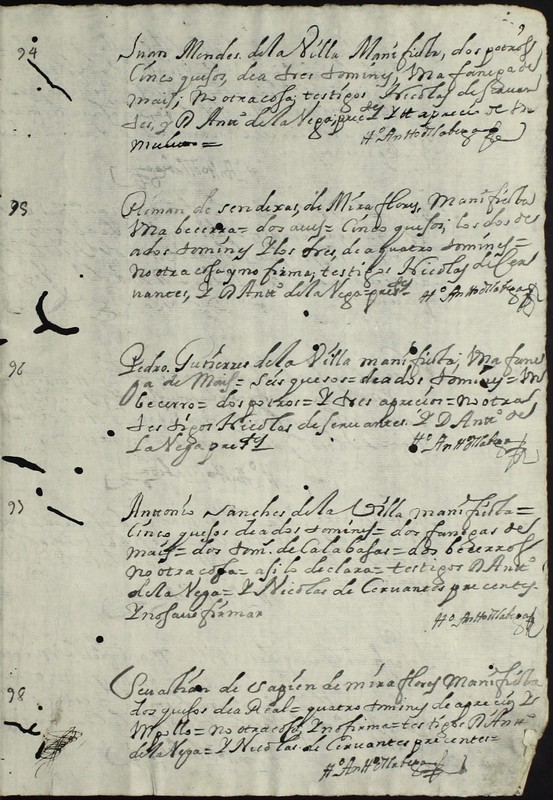 9
94
Juan Mendes. de la Villa Manifiesta, dos potros
Cinco quesos, de a tres tomines, Una fanega de
mais; no otra cosa; testigos Nicolas de Servan
tes, y D Antto de la Vega, pretes Y tt aprecio de Un
mulo =
tto Antto dla bega
95
Roman, de senderas, de Miraflores, Manifiesta
Una becerra = dos aues = Cinco quesos, los dos de
ados tomines Y los tres, de a quatro tomines =
no otra cosa y no firma, testigos Nicolas de Cer
uantes, Y D Antto de la Vega = pretes tto Antto dlabega
96
Pedro. Gutierres de la Villa manifiesta; Una fane
ga de Mais = seis quesos = de a dos tomines = Un
becerro = dos potros = Y tres aprecios = no otra
testigos Nicolas de seruantes. Y D Antto de
La Vega pretes
tto Antto dlabega
97
Anttonio Sanches de la Villa manifiesta =
Cinco quesos de a dos tomines = dos fanegas de
mais = dos tom. de Calabasas = dos becerros
no otra cosa = asi lo declara = testigos D Antto
de la Vega = Y Nicolas de Ceruantes precentes
Y no sauo firmar
tto Antto dlabega
98
Seuastian de de miraflores Manifiesta
dos quesos de a Real = quatro tomines de aprecio, Y
Un pollo = no otra cosa, Y no firma = testigos D Antto
de la Vega = Y Nicolas de Ceruantes precentes =
tto Antto dlabega